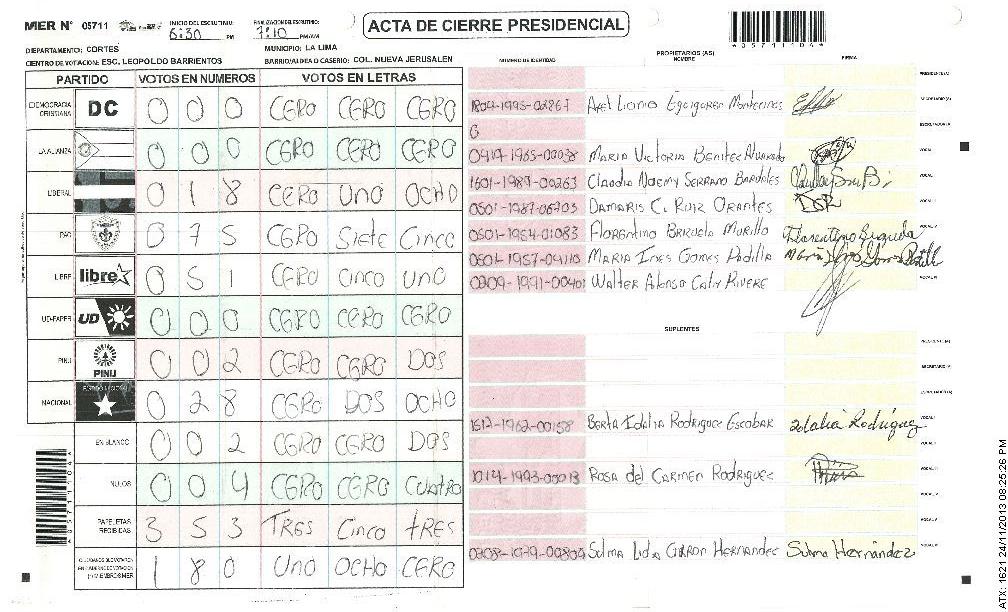 MER N° 05711
INICIO DEL ESCRUTINIO: 6:30 PM
FINALIZACION DEL ESCRUTINIO: 7:10 PM/AM
ACTA DE CIERRE PRESIDENCIAL
*05711104*
DEPARTAMENTO: CORTES
MUNICIPIO: LA LIMA
CENTRO DE VOTACION: ESC. LEOPOLDO BARRIENTOS
BARRIO/ALDEA O CASERIO: COL. NUEVA JERUSALEN
NUMERO DE IDENTIDAD
PROPIETARIOS (AS)
NOMBRE
FIRMA
PARTIDO VOTOS EN NUMEROS VOTOS EN LETRAS
DEMOCRACIA CRISTIANA DC 0 0 0 CERO CERO CERO
LA ALIANZA 0 0 0 CERO CERO CERO
LIBERAL 0 1 8 CERO UNO OCHO
PAC 0 7 5 CERO SIETE CINCO
LIBRE libre 0 5 CERO CINCO UNO
UD-FAPER UD 0 0 0 CERO CERO CERO
PINU PINU 0 0 2 CERO CERO DOS
NACIONAL PARTIDO NACIONAL 0 2 8 CERO DOS OCHO
EN BLANCO 0 0 2 CERO CERO DOS
NULOS 0 0 4 CERO CERO CUATRO
PAPELETAS RECIBIDAS 3 5 3 TRES CINCO TRES
1 8 0 UNO OCHO CERO
PRESIDENTE(A)
1804-1995-02867 SECRETARIO(A)
0
0419-1965-00038 MARIA VICTORIA BENITEZ ALVARADO VOCAL I
1601-1989-00263 Claudia Noemy SERRANO BARDALES
0501-1987-06703 DAMARIS C. RUIZ ORANTES
0501-1954-01083 FLORENTINO BRIZUELA MURILLO
0501-1957-04110 MARIA INES GOMES PADILLA
0209-1991-00401 WALTER
SUPLENTES
PRESIDENTE (A)
SECRETARIO (A)
ESCRUTADOR (A)
1612-1962-00158 BERTA IDALIA RODRIGUEZ ESCOBAR Idalia Rodriguez
ROSA del CARMEN RODRIGUEZ
HERNANDEZ Hernández
ATX: 1621 24/11/2013 08:25:26 PM